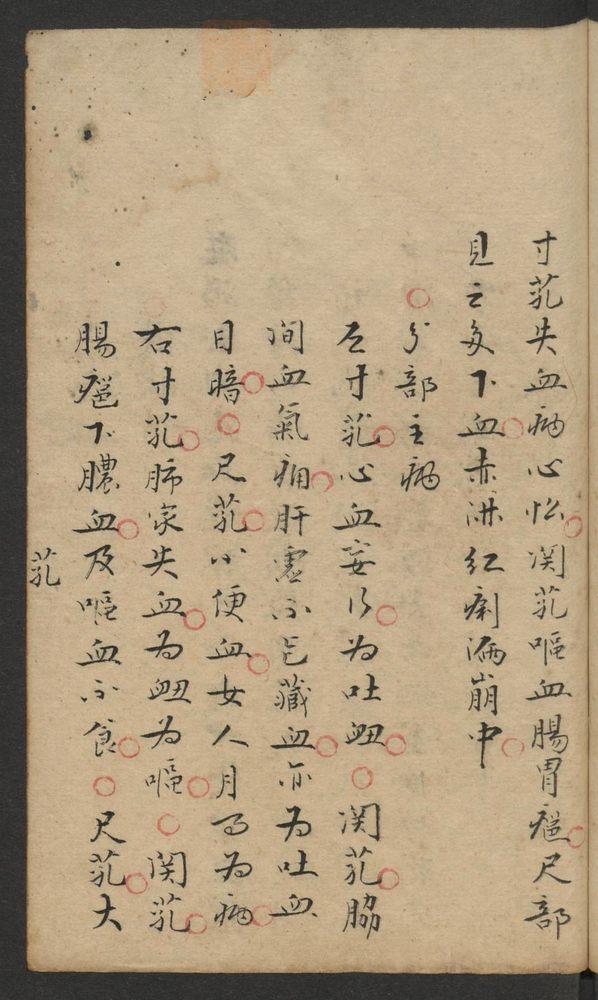 寸芤失血病心忪関芤嘔血腸胃癰尺部
見之多下血赤淋紅痢漏崩中
○分部主病
左寸芤心血妄行为吐衂○関芤脇
间血氣痛肝虚不能藏血亦为吐血
目暗○尺芤小便血女人月事为病
右寸芤肺家失血为衂为嘔○関芤
腸癰下膿血及嘔血不食○尺芤大
芤